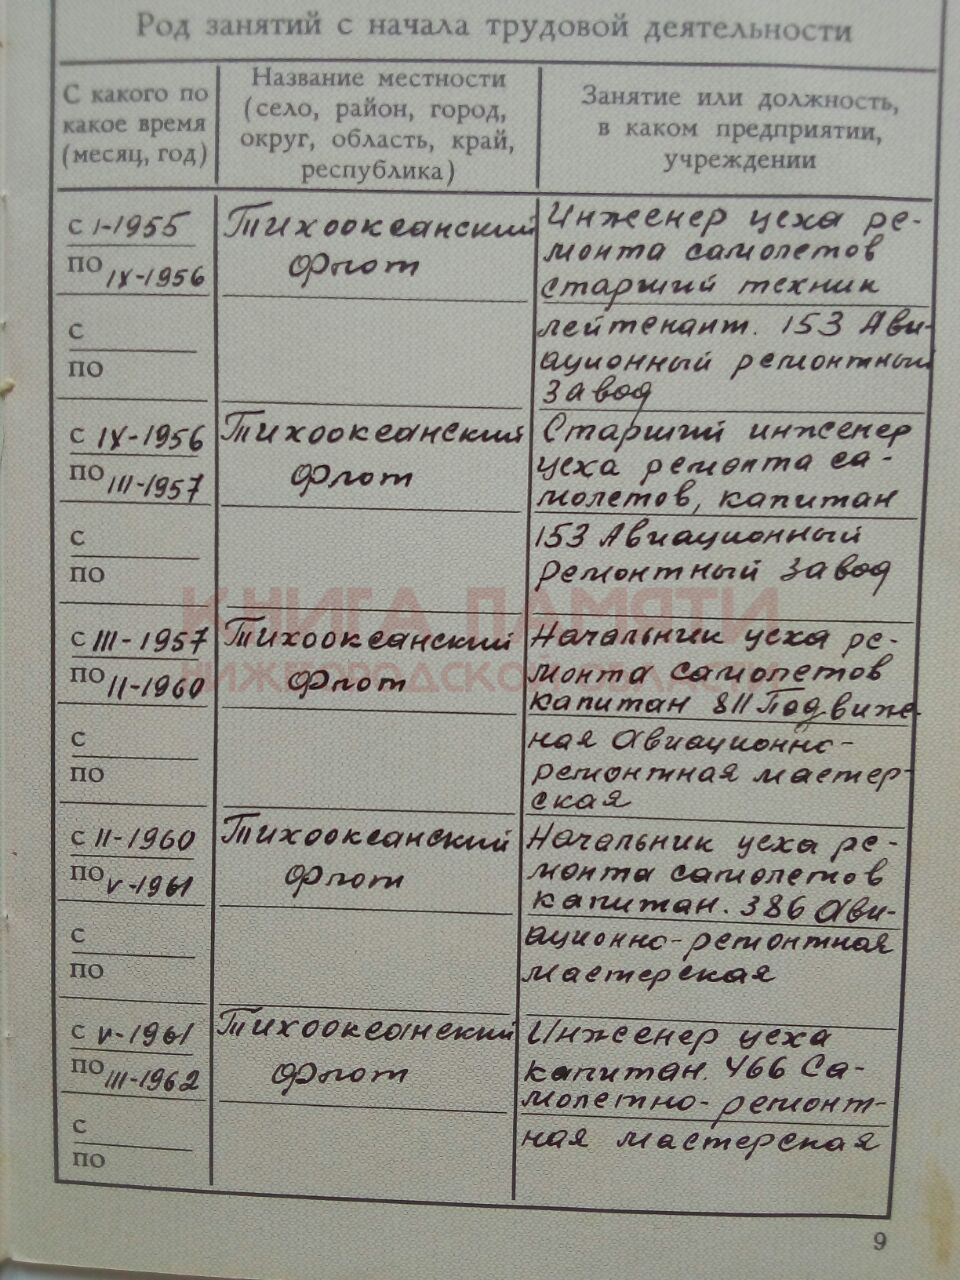 Род занятий с начала трудовой деятельности
С какого по
какое время
(месяц, год)
Название местности
(село, район, город,
округ, область, край,
республика)
Занятие или должность,
в каком предприятии,
учреждении
с I-1955
по IX-1956
с
по
Тихоокеанский
Флот
Инженер цеха ре-
монта самолетов
старший техник
лейтенант. 153 Ави-
ационный ремонтный
завод
с IX-1956
по III-1957
с
по
Тихоокеанский
Флот
Старший инженер
цеха ремонта са-
молетов, капитан
153 Авиационный
ремонтный завод
с III-1957
по II-1960
с
по
Тихоокеанский
Флот
Начальник цеха ре-
монта самолетов
капитан 811 Подвиж-
ная авиационно-
ремонтная мастер-
ская
с II-1960
по V-1961
с
по
Тихоокеанский
Флот
Начальник цеха ре-
монта самолетов
капитан. 386 Ави-
ационно-ремонтная
мастерская
с V-1961
по III-1962
с
по
Тихоокеанский
Флот
Инженер цеха
капитан. 466 Са-
молетно-ремонт-
ная мастерская
КНИГА ПАМЯТИ
НИЖЕГОРОДСКОЙ ОБЛАСТИ
9